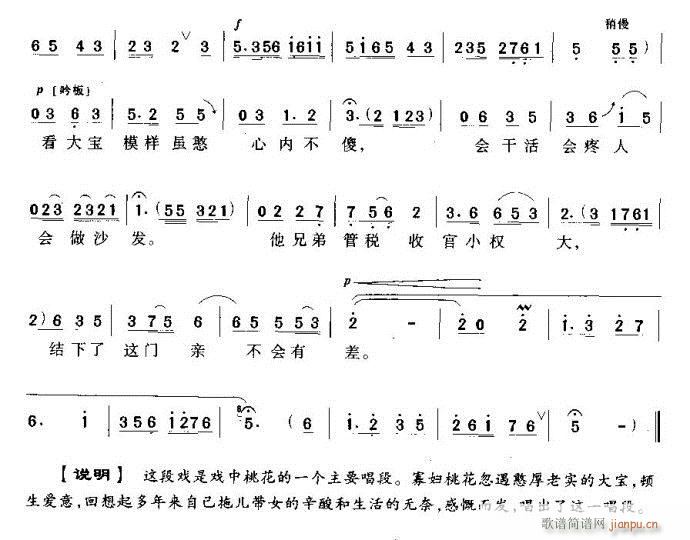 稍慢
6 5 4 3 | 2 3 2 ∨ 3 | f 5.356 1611 | 5165 4 3 | 235 2761 | 5 5 5) |
p [吟板]
0 3 6 3 | 5. 2 5 5 | 0 3 1. 2 | 3. (2 123) | 0 6 3 5 | 3 6 1 5 |
看大宝 模样虽憨 心内不傻, 会干活 会疼人
023 2321 | 1. (55 321) | 0 2 2 7 | 7 5 6 | 3. 6 653 | 2. (3 1761 |
会做沙发。 他兄弟 管税 收官小权 大,
p
2) 6 3 5 | 3 7 5 6 | 6 5 5 5 3 | 2 - | 2 0 2 | 1. 3 2 7 |
结下了 这门 亲 不会有 差。
6. 1 | 356 1276 | 5. (6 | 1. 2 3 5 | 2 6 1 7 6 ∨ | 5 - ‖
【说明】 这段戏是戏中桃花的一个主要唱段。寡妇桃花忽遇憨厚老实的大宝,顿
生爱意,回想起多年来自己拖儿带女的辛酸和生活的无奈,感慨而发,唱出了这一唱段。
歌谱简谱网 jianpu.cn